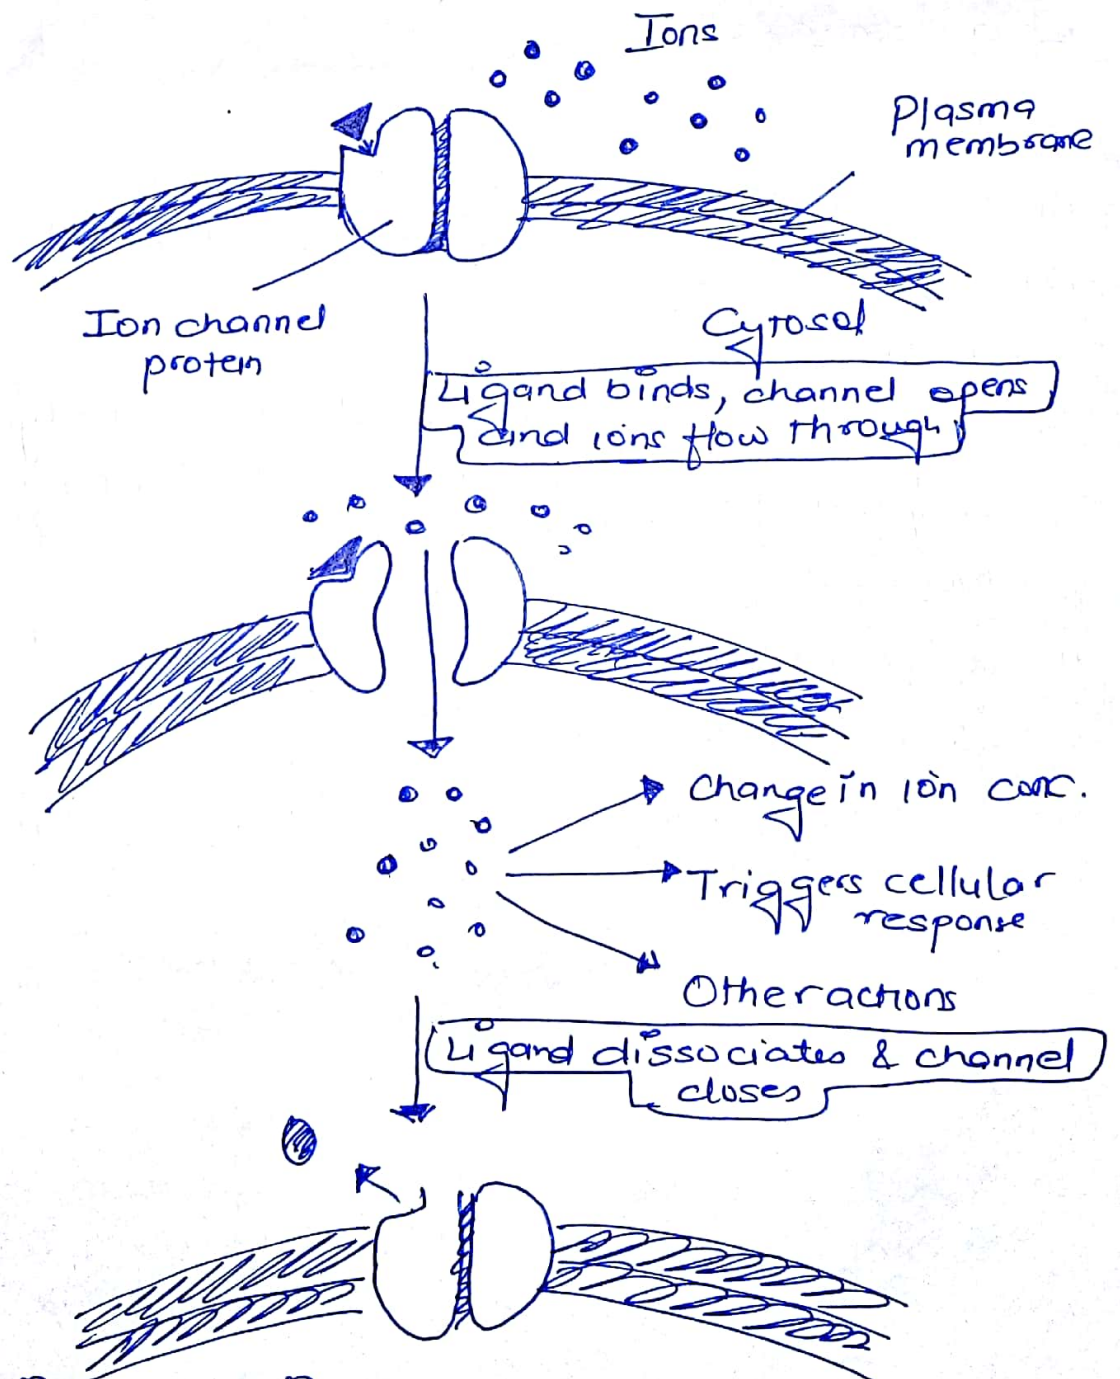 Ions
Plasma
membrane
Ion channel
protein
Cytosol
Ligand binds, channel opens
and ions flow through
Change in ion conc.
Triggers cellular
response
Other actions
Ligand dissociates & channel
closes